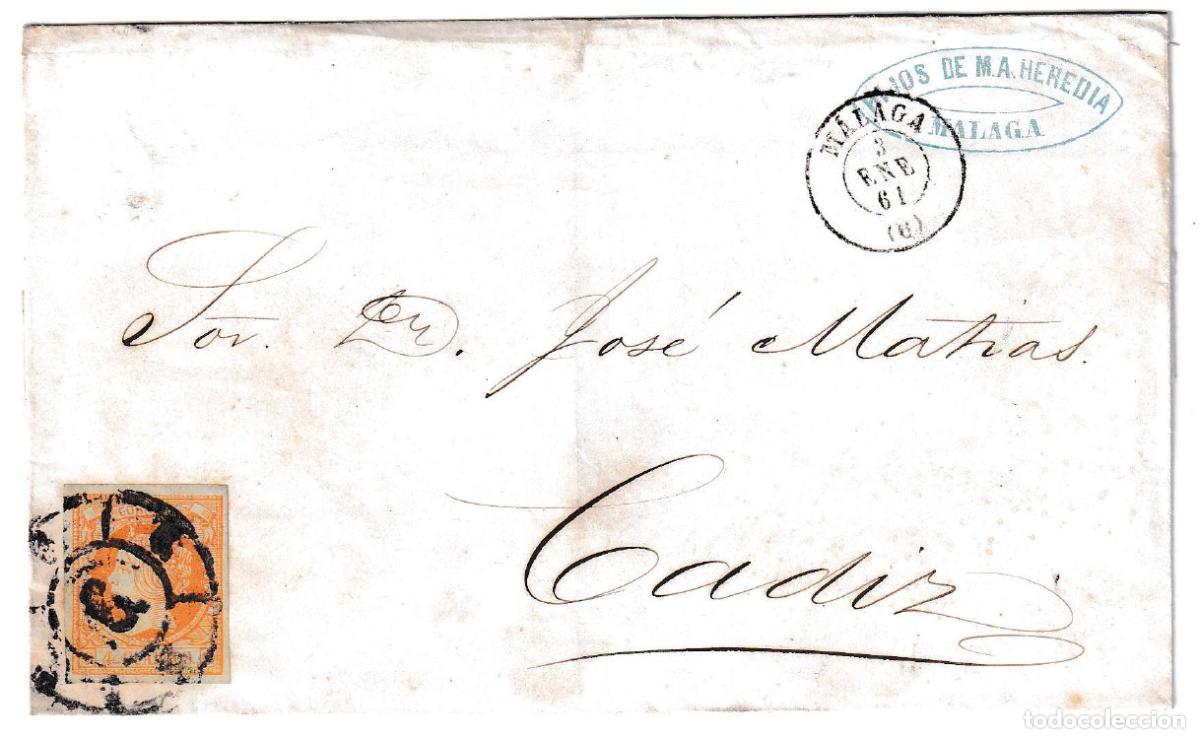 HIJOS DE M.A. HEREDIA
MALAGA
MALAGA
3
ENE
61
(6)
Sor. Dn. José Matias.
Cadiz
6
todocoleccion